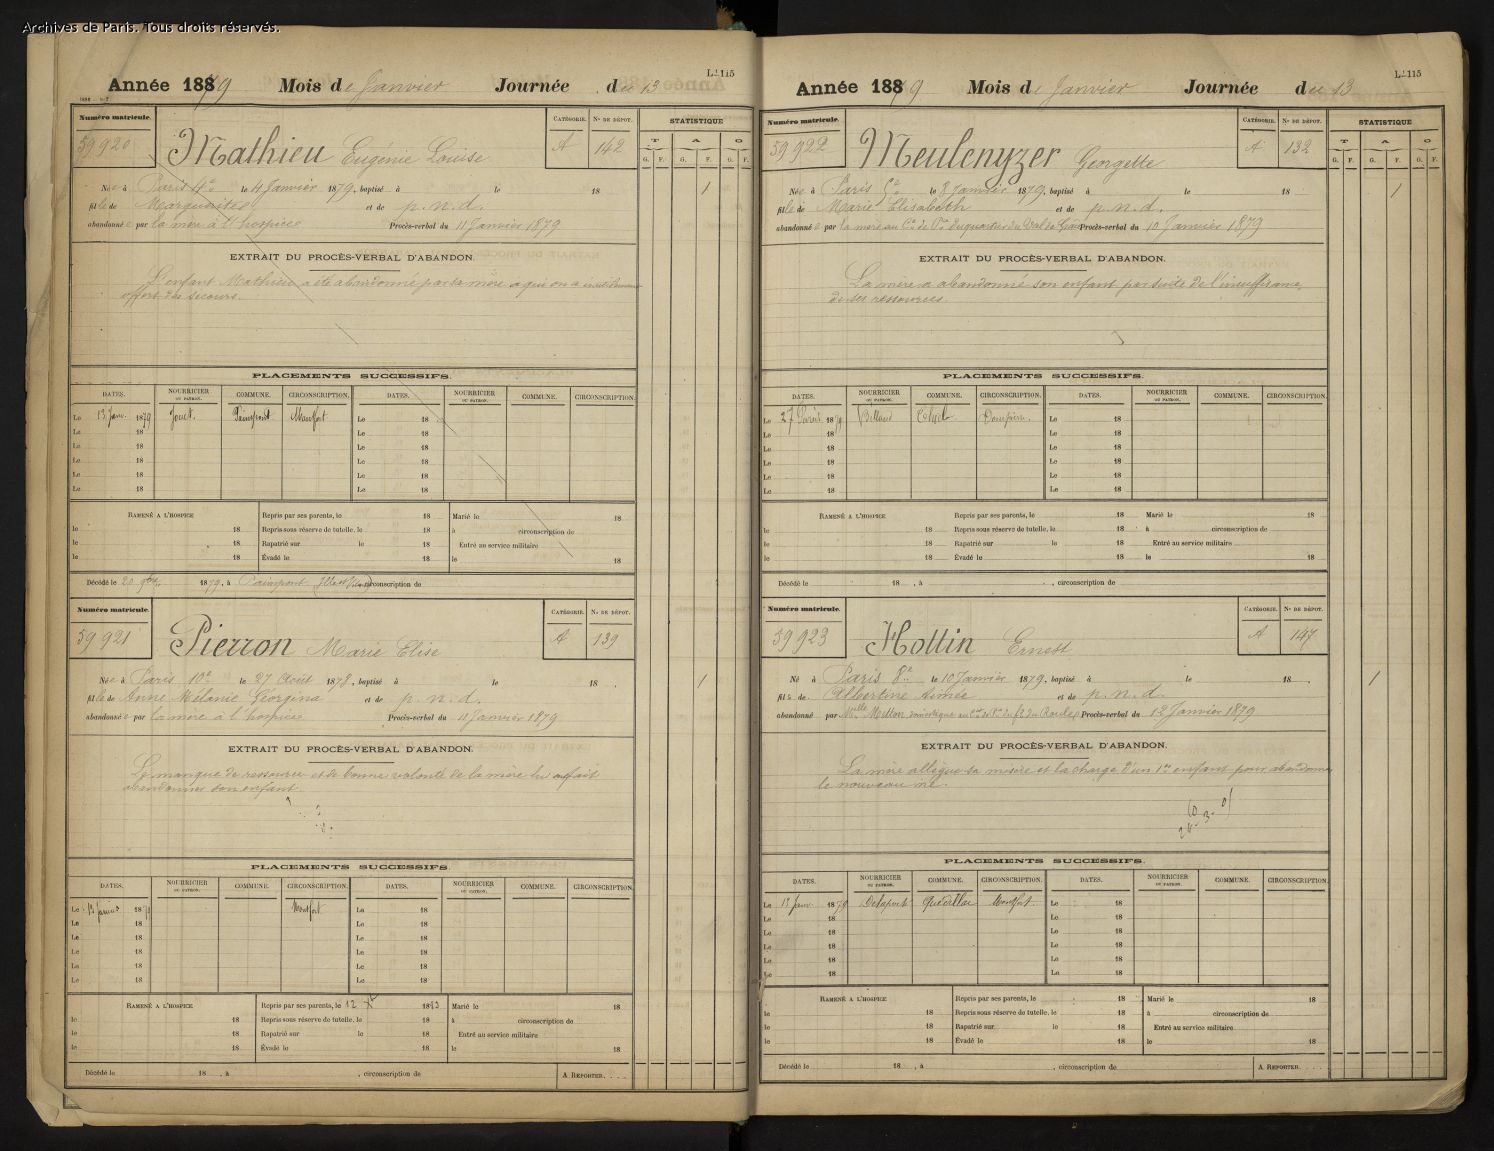 Archives de Paris. Tous droits réservés.
L¹ 115
Année 1879 Mois de Janvier Journée du 13
Numéro matricule.
59920
Mathieu Eugenie Louise
CATÉGORIE. A
Nº DE DÉPOT. 142
STATISTIQUE
T A O
G. F. G. F. G. F.
Née à Paris 4e le 4 Janvier 1879, baptisé à le 18
1
fille de Marguerite et de p. n. d.
abandonnée par la mère à l'hospice Procès-verbal du 11 Janvier 1879
EXTRAIT DU PROCÈS-VERBAL D'ABANDON.
L'enfant Mathieu a été abandonné par sa mère a qui on a
offert des secours.
PLACEMENTS SUCCESSIFS.
DATES. NOURRICIER OU PATRON. COMMUNE. CIRCONSCRIPTION. DATES. NOURRICIER OU PATRON. COMMUNE. CIRCONSCRIPTION.
Le 13 Janv. 1879 Jouet Paimpont Montfort Le 18
Le 18 Le 18
Le 18 Le 18
Le 18 Le 18
Le 18 Le 18
Le 18 Le 18
RAMENÉ A L'HOSPICE Repris par ses parents, le 18 Marié le 18
le 18 Repris sous réserve de tutelle, le 18 à circonscription de
le 18 Rapatrié sur le 18 Entré au service militaire
le 18 Évadé le 18 le 18
Décédé le 20 9bre 1879, à Paimpont circonscription de
Numéro matricule.
59921
Pierron Marie Elise
CATÉGORIE. A
Nº DE DÉPOT. 139
Née à Paris 10e le 27 Août 1878, baptisé à le 18
1
fille de Anne Mélanie Géorgina et de p. n. d.
abandonnée par la mère à l'hospice Procès-verbal du 11 Janvier 1879
EXTRAIT DU PROCÈS-VERBAL D'ABANDON.
Le manque de ressources et de bonne volonté de la mère lui ont fait
abandonner son enfant.
PLACEMENTS SUCCESSIFS.
DATES. NOURRICIER OU PATRON. COMMUNE. CIRCONSCRIPTION. DATES. NOURRICIER OU PATRON. COMMUNE. CIRCONSCRIPTION.
Le 13 Janvier 1879 Montfort Le 18
Le 18 Le 18
Le 18 Le 18
Le 18 Le 18
Le 18 Le 18
Le 18 Le 18
RAMENÉ A L'HOSPICE Repris par ses parents, le 12 Xbre 18 Marié le 18
le 18 Repris sous réserve de tutelle, le 18 à circonscription de
le 18 Rapatrié sur le 18 Entré au service militaire
le 18 Évadé le 18 le 18
Décédé le 18 , à , circonscription de A REPORTER. . . .
L¹ 115
Année 1879 Mois de Janvier Journée du 13
Numéro matricule.
59922
Meulenyzer Georgette
CATÉGORIE. A
Nº DE DÉPOT. 132
STATISTIQUE
T A O
G. F. G. F. G. F.
Née à Paris 5e le 8 Janvier 1879, baptisé à le 18
1
fille de Marie Elisabeth et de p. n. d.
abandonnée par la mère au Cre de Pce du quartier du Val de Grâce Procès-verbal du 10 Janvier 1879
EXTRAIT DU PROCÈS-VERBAL D'ABANDON.
La mère a abandonné son enfant par suite de l'insuffisance
de ses ressources.
PLACEMENTS SUCCESSIFS.
DATES. NOURRICIER OU PATRON. COMMUNE. CIRCONSCRIPTION. DATES. NOURRICIER OU PATRON. COMMUNE. CIRCONSCRIPTION.
Le 27 1879 Dompierre Le 18
Le 18 Le 18
Le 18 Le 18
Le 18 Le 18
Le 18 Le 18
Le 18 Le 18
RAMENÉ A L'HOSPICE Repris par ses parents, le 18 Marié le 18
le 18 Repris sous réserve de tutelle, le 18 à circonscription de
le 18 Rapatrié sur le 18 Entré au service militaire
le 18 Évadé le 18 le 18
Décédé le 18 , à , circonscription de
Numéro matricule.
59923
Hottin Ernest
CATÉGORIE. A
Nº DE DÉPOT. 147
Né à Paris 8e le 10 Janvier 1879, baptisé à le 18
1
fils de Albertine Aimée et de p. n. d.
abandonné par Mlle domestique au Cre de Pce du du Roule Procès-verbal du 12 Janvier 1879
EXTRAIT DU PROCÈS-VERBAL D'ABANDON.
La mère allègue sa misère et la charge d'un 1er enfant pour abandonner
le nouveau né.
PLACEMENTS SUCCESSIFS.
DATES. NOURRICIER OU PATRON. COMMUNE. CIRCONSCRIPTION. DATES. NOURRICIER OU PATRON. COMMUNE. CIRCONSCRIPTION.
Le 13 Janv. 1879 Delaport Quedillac Montfort Le 18
Le 18 Le 18
Le 18 Le 18
Le 18 Le 18
Le 18 Le 18
Le 18 Le 18
RAMENÉ A L'HOSPICE Repris par ses parents, le 18 Marié le 18
le 18 Repris sous réserve de tutelle, le 18 à circonscription de
le 18 Rapatrié sur le 18 Entré au service militaire
le 18 Évadé le 18 le 18
Décédé le 18 , à , circonscription de A REPORTER. . . .